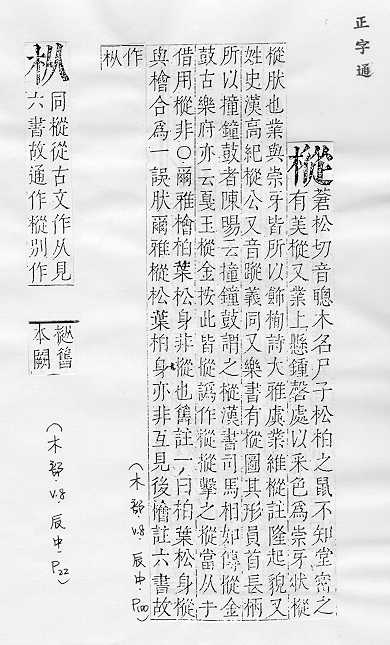 正字通
樅
蒼松切音聰木名尸子松柏之鼠不知堂密之
有美樅又業上懸鍾磬處以采色爲崇牙狀樅
樅肰也業與崇牙皆所以飾栒詩大雅虡業維樅註隆起貌又
姓史漢高紀樅公又音蹤義同又樂書有樅圖其形員首長柄
所以撞鐘鼓者陳暘云撞鐘鼓謂之樅漢書司馬相如傳樅金
鼓古樂府亦云戛玉樅金按此皆樅譌作摐摐擊之摐當从手
借用樅非○爾雅檜柏葉松身非樅也舊註一曰柏葉松身樅
與檜合爲一誤肰爾雅樅松葉柏身亦非互見後檜註六書故
作枞
(木部.v.8 辰中.P.20)
枞
同樅從古文作从見
六書故通作樅別作
樅舊
本闕
(木部.v.8 辰中.P.22)